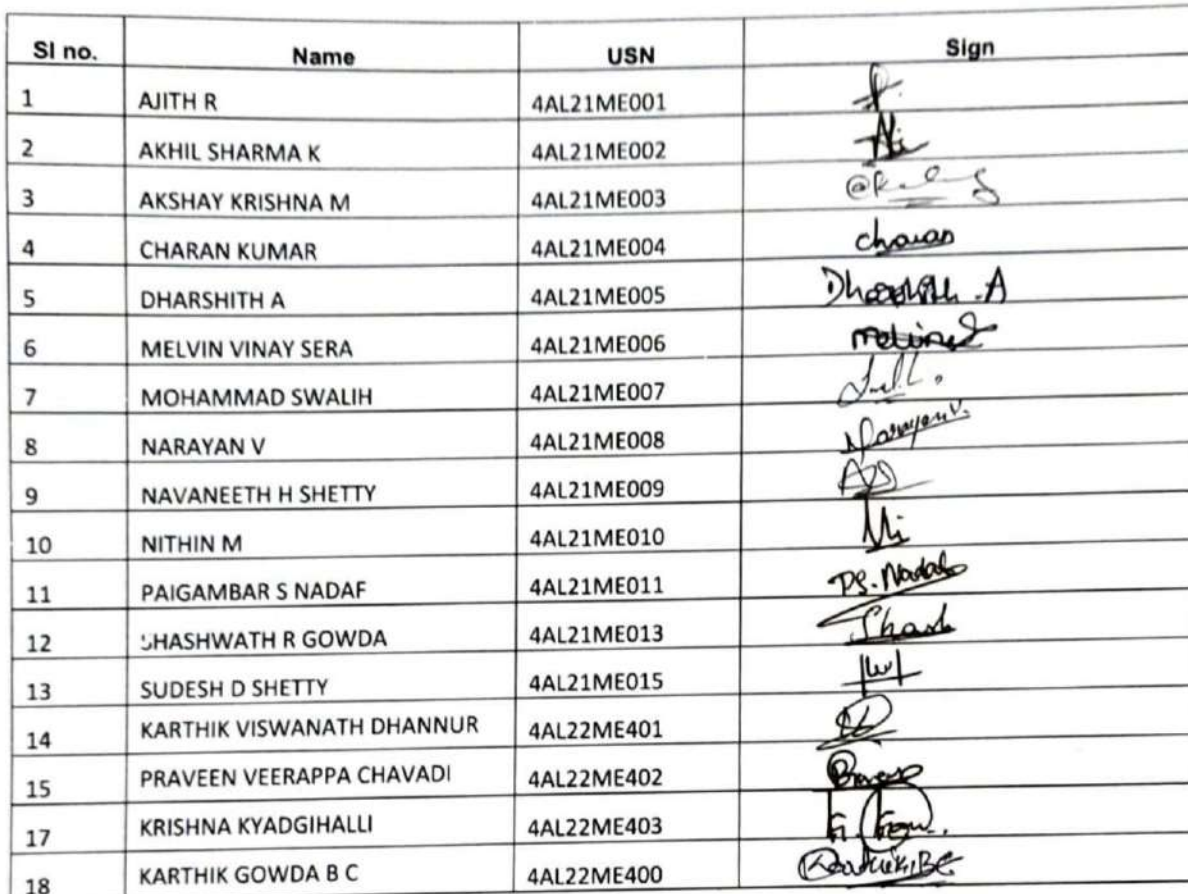 Sl no. Name USN Sign
1 AJITH R 4AL21ME001
2 AKHIL SHARMA K 4AL21ME002
3 AKSHAY KRISHNA M 4AL21ME003
4 CHARAN KUMAR 4AL21ME004 charan
5 DHARSHITH A 4AL21ME005 Dharshith .A
6 MELVIN VINAY SERA 4AL21ME006
7 MOHAMMAD SWALIH 4AL21ME007
8 NARAYAN V 4AL21ME008 Narayan V.
9 NAVANEETH H SHETTY 4AL21ME009
10 NITHIN M 4AL21ME010
11 PAIGAMBAR S NADAF 4AL21ME011 PS. Nadaf
12 SHASHWATH R GOWDA 4AL21ME013 Shash
13 SUDESH D SHETTY 4AL21ME015
14 KARTHIK VISWANATH DHANNUR 4AL22ME401
15 PRAVEEN VEERAPPA CHAVADI 4AL22ME402
17 KRISHNA KYADGIHALLI 4AL22ME403
18 KARTHIK GOWDA B C 4AL22ME400 Karthik.BC